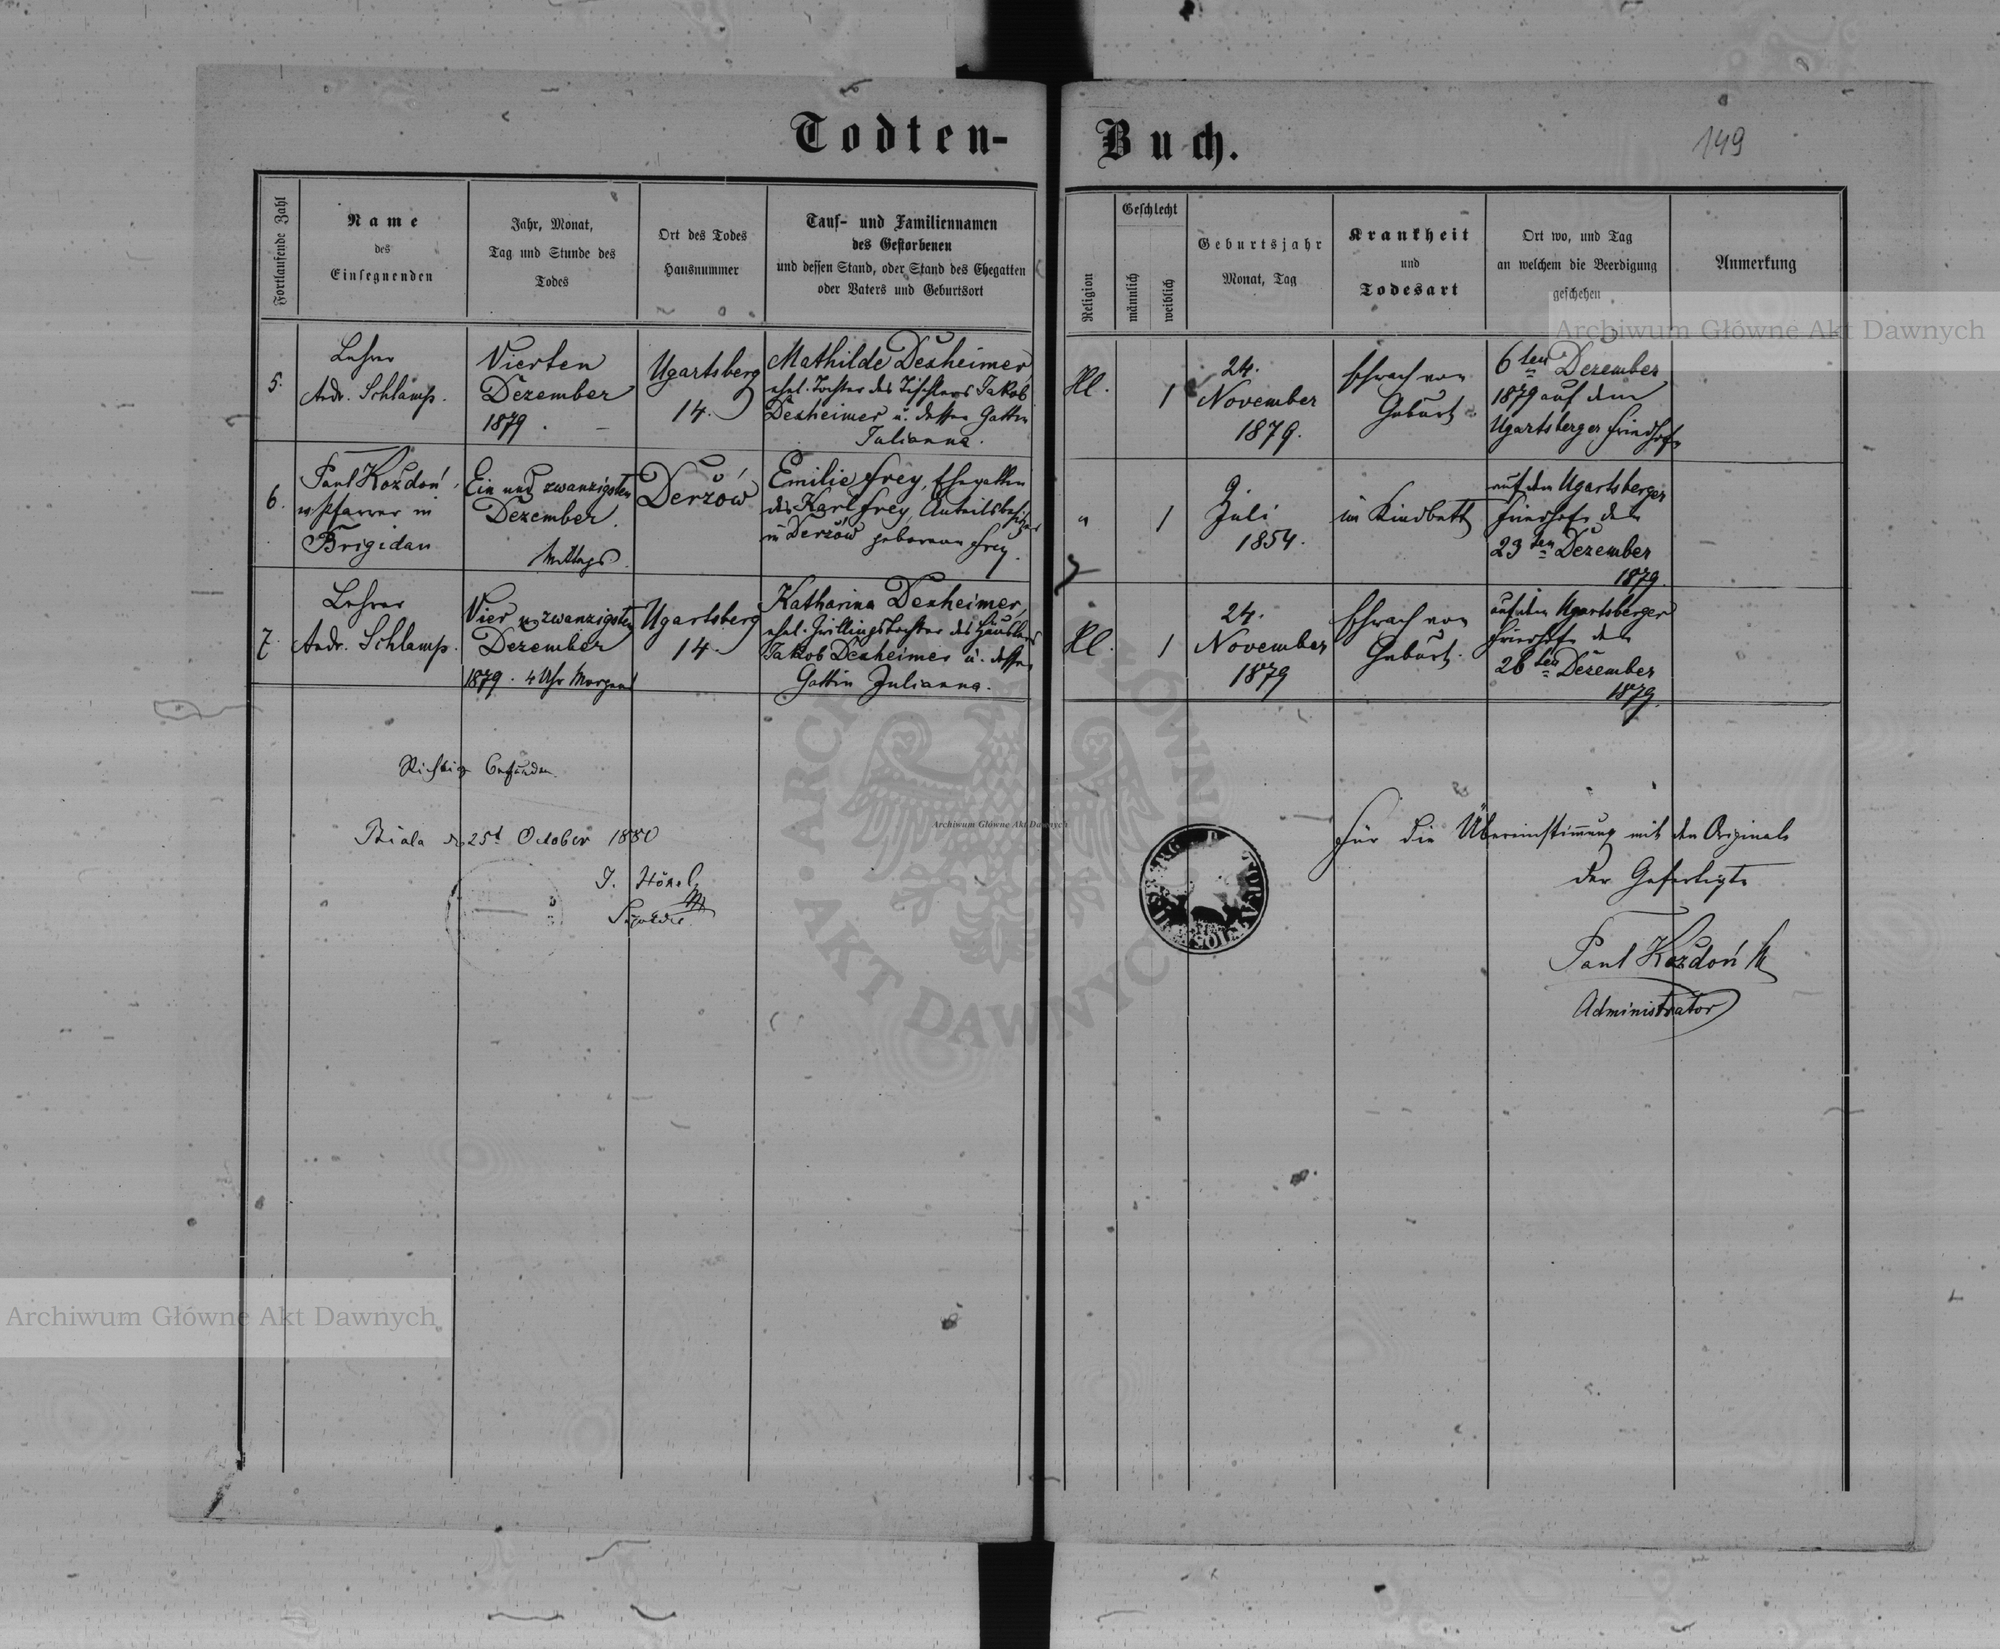 Todten-
Buch.
149
Fortlaufende Zahl
Name
des
Einsegnenden
Jahr, Monat,
Tag und Stunde des
Todes
Ort des Todes
Hausnummer
Tauf- und Familiennamen
des Gestorbenen
und dessen Stand, oder Stand des Ehegatten
oder Vaters und Geburtsort
Religion
Geschlecht
männlich
weiblich
Geburtsjahr
Monat, Tag
Krankheit
und
Todesart
Ort wo, und Tag
an welchem die Beerdigung
geschehen
Anmerkung
5.
Lehrer
Andr. Schlamp.
Vierten
Dezember
1879.
Ugartsberg
14.
Mathilde Dexheimer
ehel. Tochter des Tischlers Jakob
Dexheimer u. dessen Gattin
Julianna.
Hl.
1
24.
November
1879.
schwach von
Geburt
6ten Dezember
1879 auf dem
Ugartsberger Friedhofe
6.
Paul Kożdoń,
Pfarrer in
Brigidau
Ein und zwanzigsten
Dezember.
Mittags.
Derżów
Emilie Frey, Ehegattin
des Karl Frey, Anteilsbesitzers
in Derżów geborene Frey.
"
1
9.
Juli
1854.
im Kindbett
auf dem Ugartsberger
Friedhofe den
23ten Dezember
1879.
7.
Lehrer
Andr. Schlamp.
Vier u. zwanzigsten
Dezember
1879. 4 Uhr Morgens
Ugartsberg
14.
Katharina Dexheimer,
ehel. Zwillingstochter des Häuslers
Jakob Dexheimer u. dessen
Gattin Julianna.
Hl.
1
24.
November
1879
schwach von
Geburt.
auf dem Ugartsberger
Friedhofe den
26ten Dezember
1879.
Richtig befunden.
Biala d. 25t October 1880
J. Hönel
Für die Übereinstimmung mit dem Originale
der Gefertigte
Paul Kożdoń
Administrator
Archiwum Główne Akt Dawnych
Archiwum Główne Akt Dawnych
Archiwum Główne Akt Dawnych